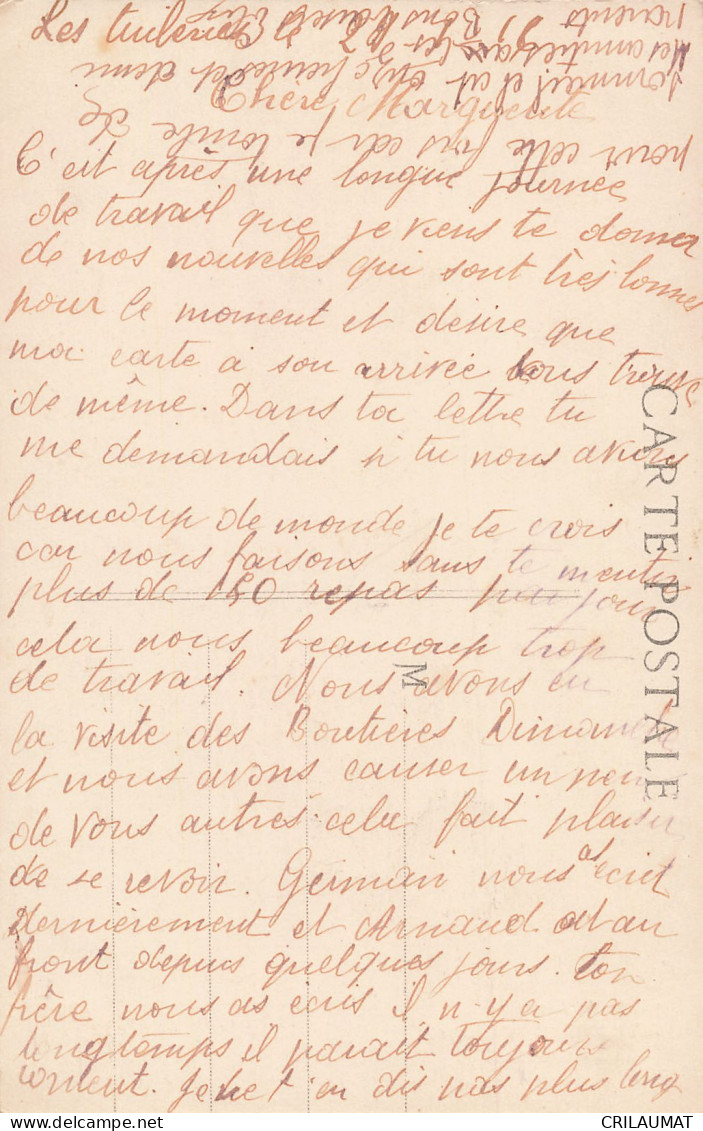 Les tuileries le 2
Chère Marguerite
C'est après une longue journée
de travail que je viens te donner
de nos nouvelles qui sont très bonnes
pour le moment et désire que
ma carte à son arrivée vous trouve
de même. Dans ta lettre tu
me demandais si tu nous avions
beaucoup de monde je te crois
car nous faisons sans te mentir
plus de 150 repas par jour
cela nous beaucoup trop
de travail. Nous avons eu
la visite des Boutières Dimanche
et nous avons causer un peu
de vous autres cela fait plaisir
de se revoir. Germain nous as écrit
dernièrement et Arnaud est au
front depuis quelques jours. ton
frère nous as écris il n-y-a pas
longtemps il parait toujours
content. Je ne t'en dis pas plus long
pour cette fois car je tombe de
sommeil et il est onze heures et demi
Mes amitiés à
parents
Bons baisers
CARTE POSTALE
M
delcampe.net
CRILAUMAT